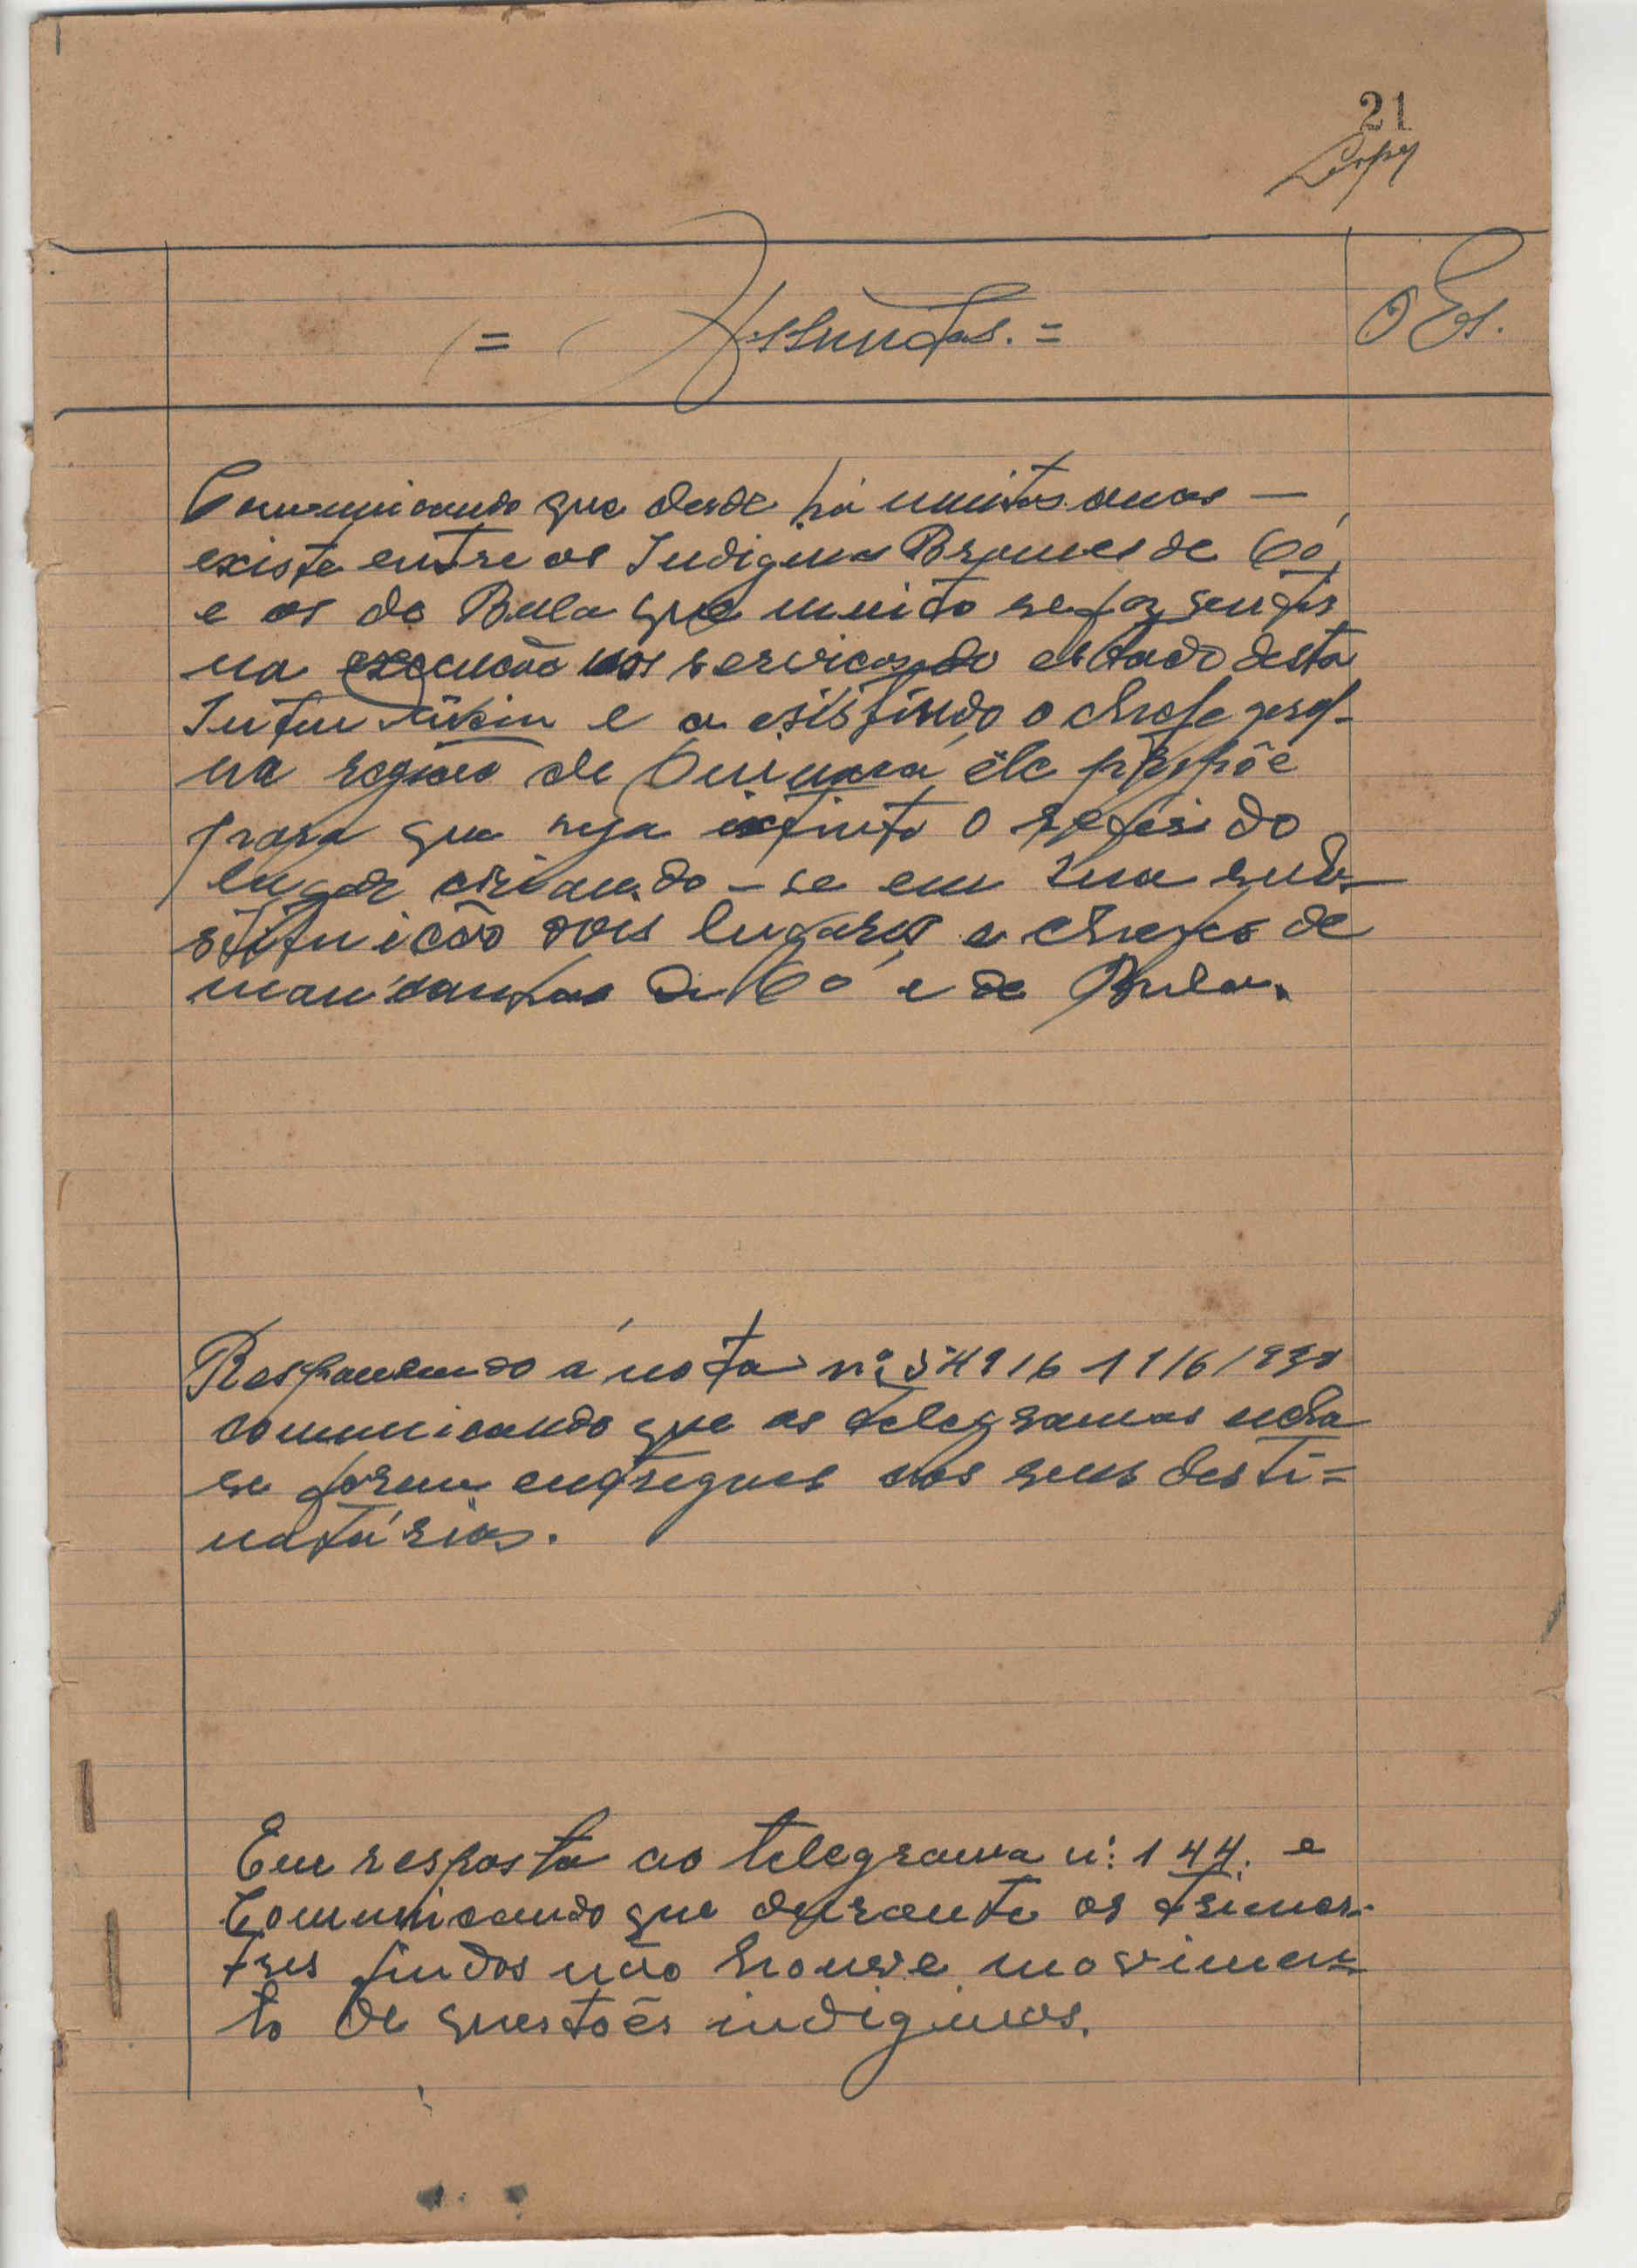 21
= Assuntos. =
Comunicando que desde há muitos anos —
existe entre os Indiginas Brames de Có,
e os de Bula que muito se faz sentir
na execução dos serviços do estado desta
e a esistindo o chefe
na região de ele propõe
para que seja extinto o referido
lugar criando-se em sua sub-
stituição dois lugares a chefes de
de Có e de Bula.
Respondendo á nota nº
comunicando que os telegramas
se foram entregues aos seus desti=
natários.
Em resposta ao telegrama nº: 144. e
Comunicando que durante os trimes-
tres findos não houve movimen=
to de questões indiginas.